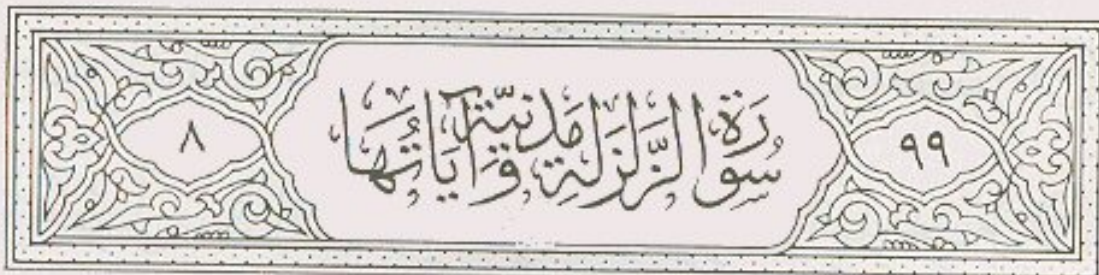 ٩٩ سُورَةُ الزَّلْزَلَةِ مَدَنِيَّة وَآيَاتُهَا ٨